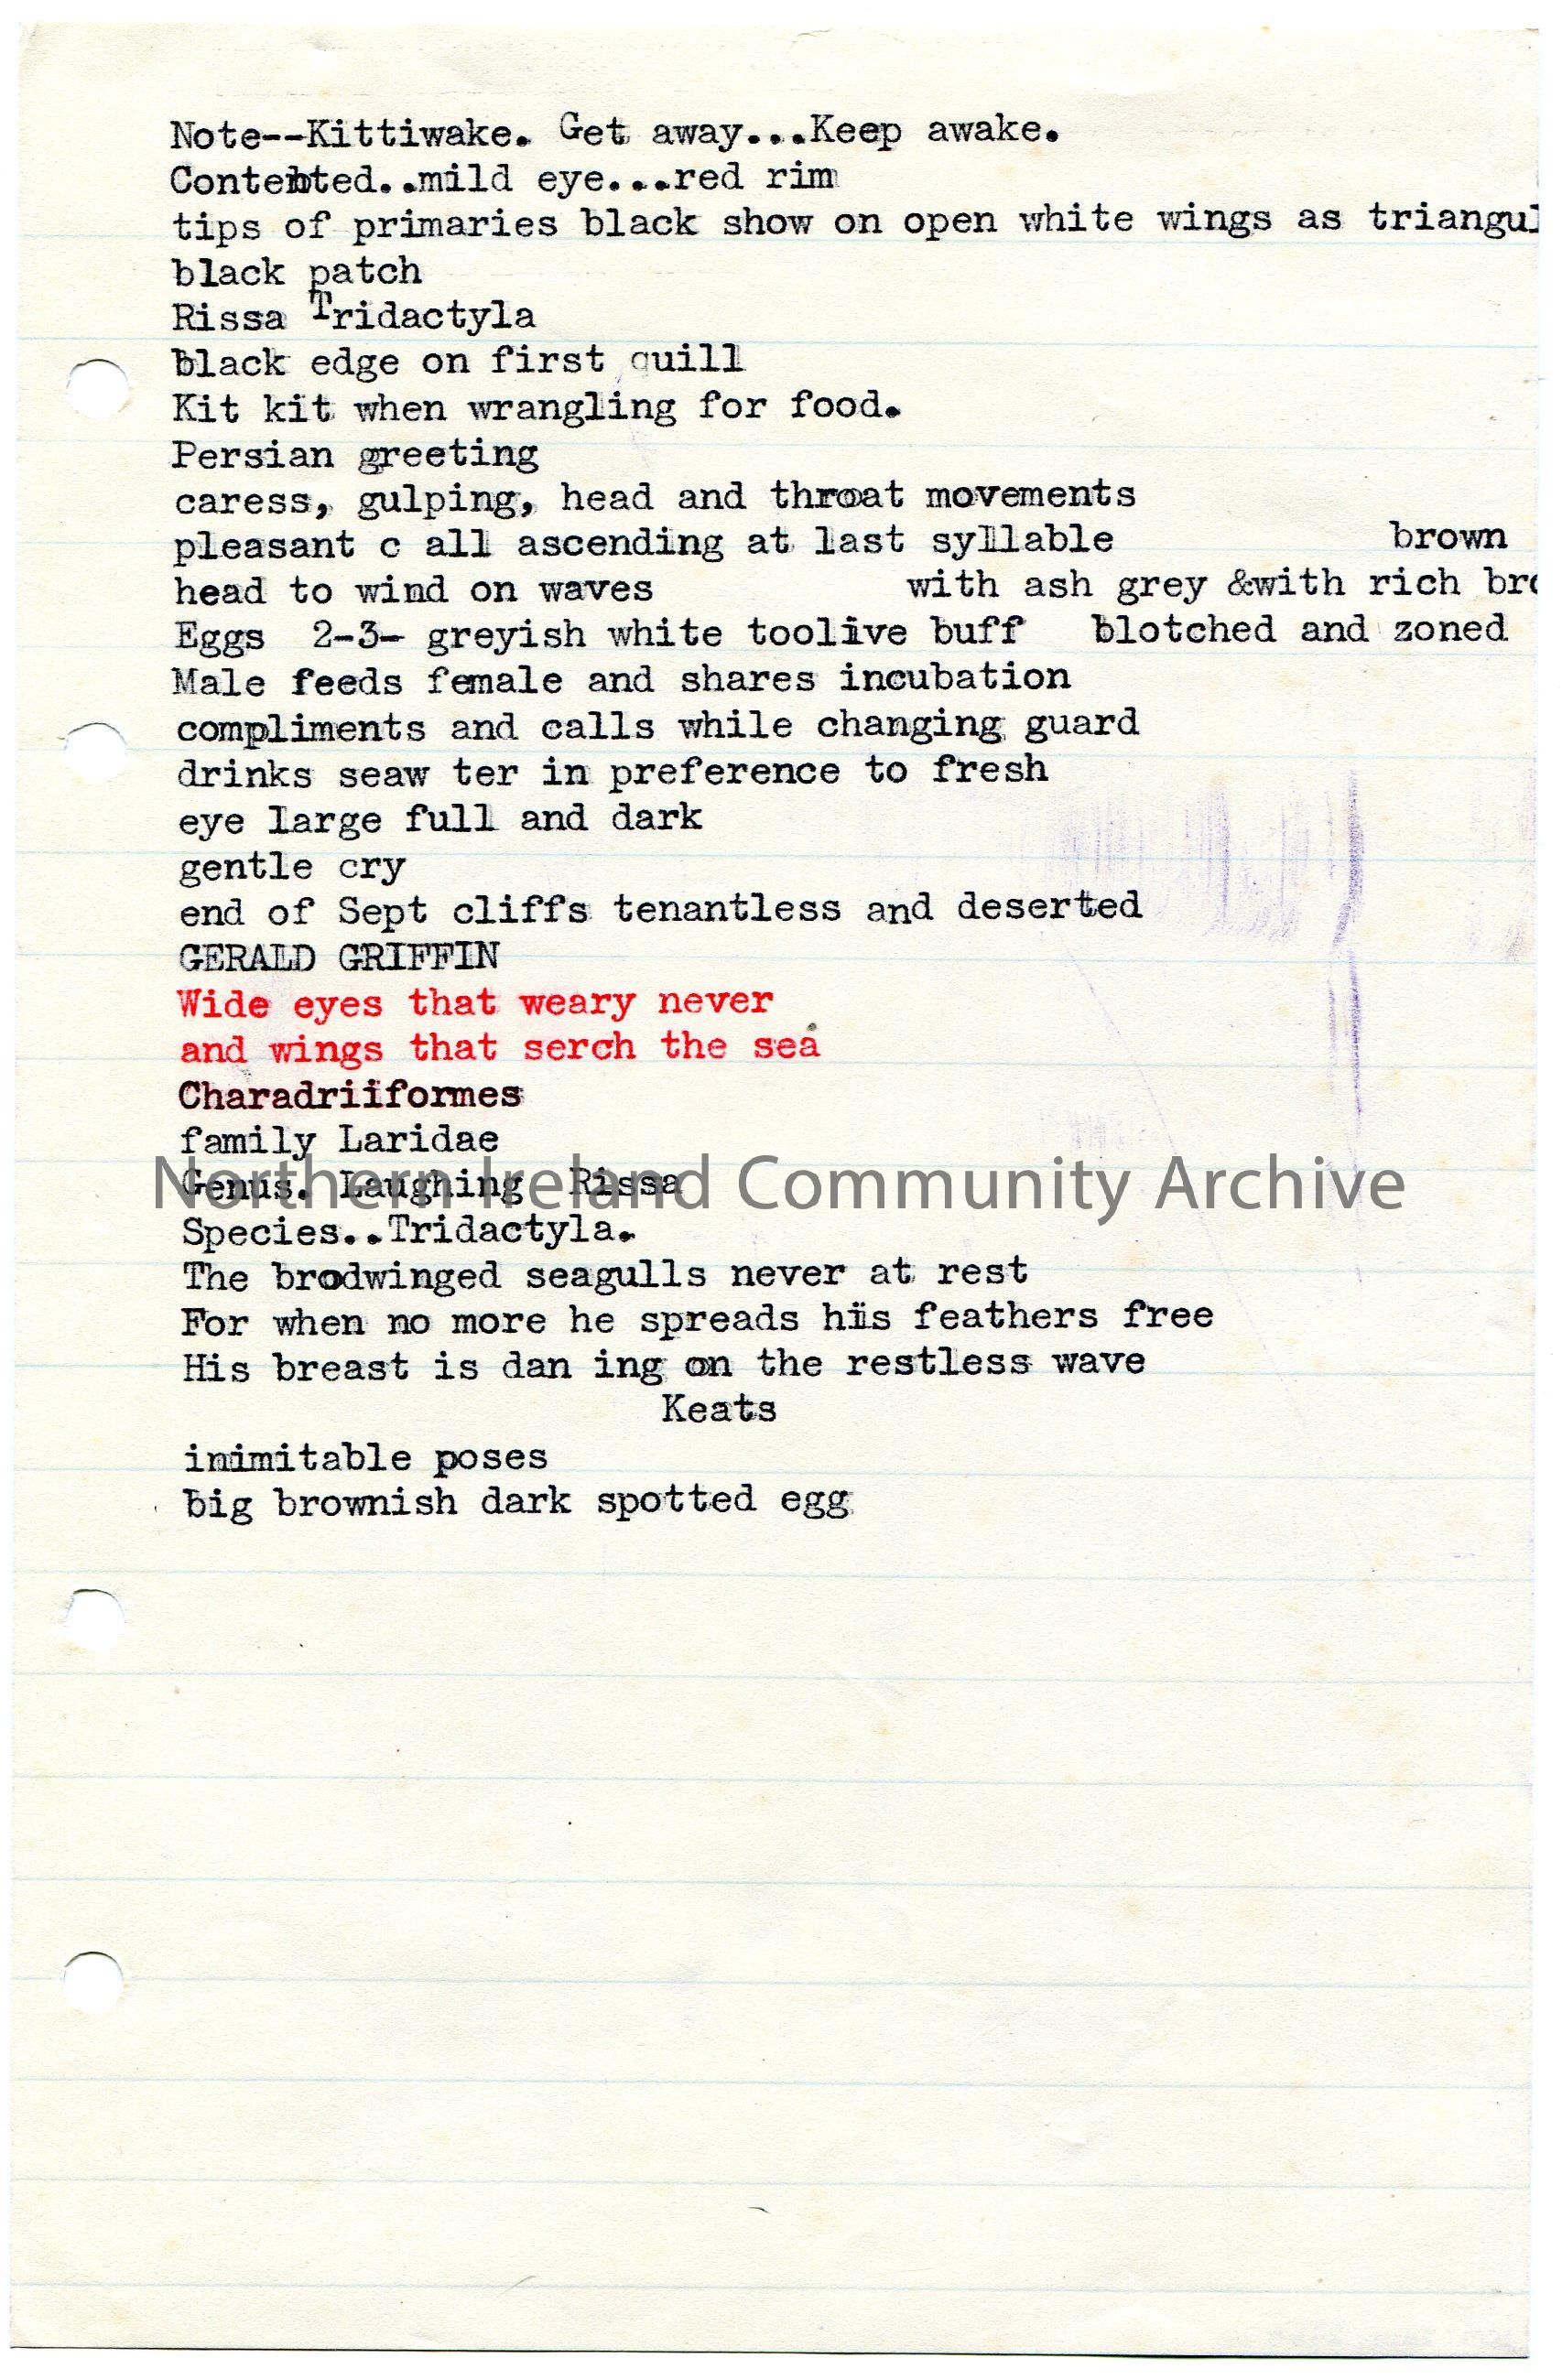 Note--Kittiwake. Get away...Keep awake.
Contented..mild eye...red rim
tips of primaries black show on open white wings as triangul
black patch
Rissa Tridactyla
black edge on first quill
Kit kit when wrangling for food.
Persian greeting
caress, gulping, head and throat movements
pleasant c all ascending at last syllable brown
head to wind on waves with ash grey &with rich bro
Eggs 2-3- greyish white toolive buff blotched and zoned
Male feeds female and shares incubation
compliments and calls while changing guard
drinks seaw ter in preference to fresh
eye large full and dark
gentle cry
end of Sept cliffs tenantless and deserted
GERALD GRIFFIN
Wide eyes that weary never
and wings that serch the sea
Charadriiformes
family Laridae
Genus. Laughing Rissa
Northern Ireland Community Archive
Species..Tridactyla.
The brodwinged seagulls never at rest
For when no more he spreads his feathers free
His breast is dan ing on the restless wave
Keats
inimitable poses
big brownish dark spotted egg